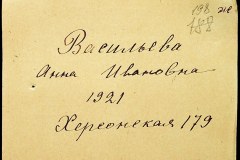 198 же
188
Васильева
Анна Ивановна
1921
Херсонская 179